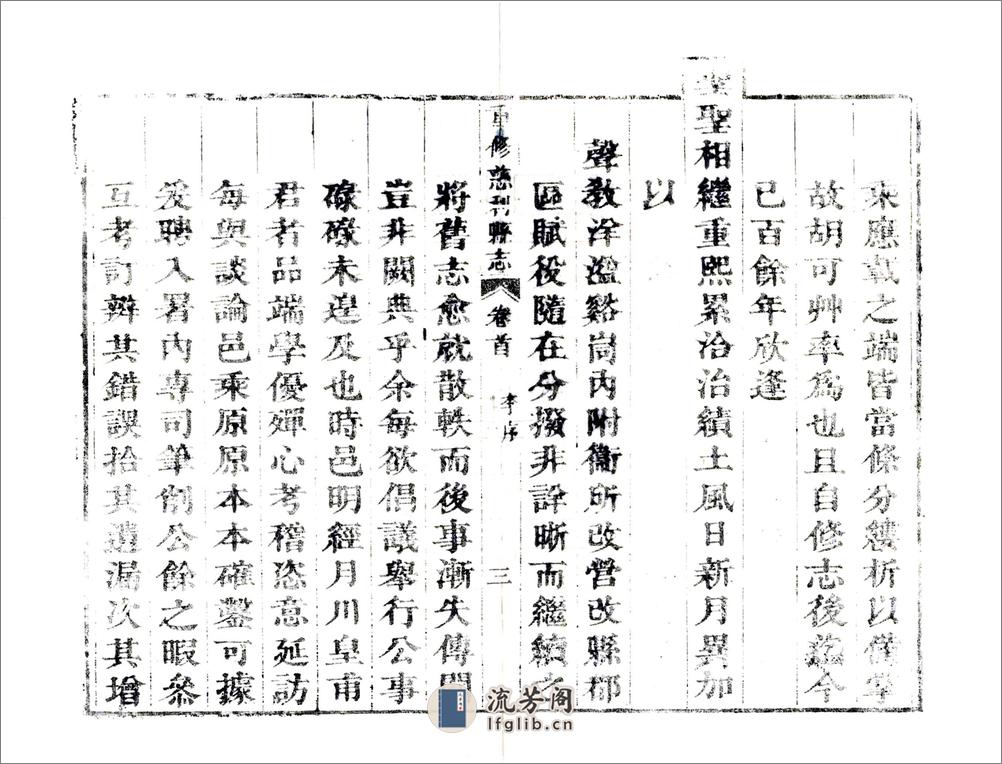 來應載之端皆當條分縷析以備掌
故胡可艸率爲也且自修志後迄今
已百餘年欣逢
聖相繼重熙累洽治績土風日新月異加
以
聲敎洋溢谿峝內附衞所改營改縣郡
區賦役隨在分撥非詳晰而繼續之
重修慈利縣志 卷首 李序 三
將舊志愈就散軼而後事漸失傳
豈非闕典乎余每欲倡議舉行公事
碌碌未遑及也時邑明經月川皇甫
君者品端學優殫心考稽恣意延訪
每與談論邑乘原原本本確鑿可據
爰聘入署內專司筆削公餘之暇叅
互考訂辨其錯誤拾其遺漏次其增
流芳阁
lfglib.cn